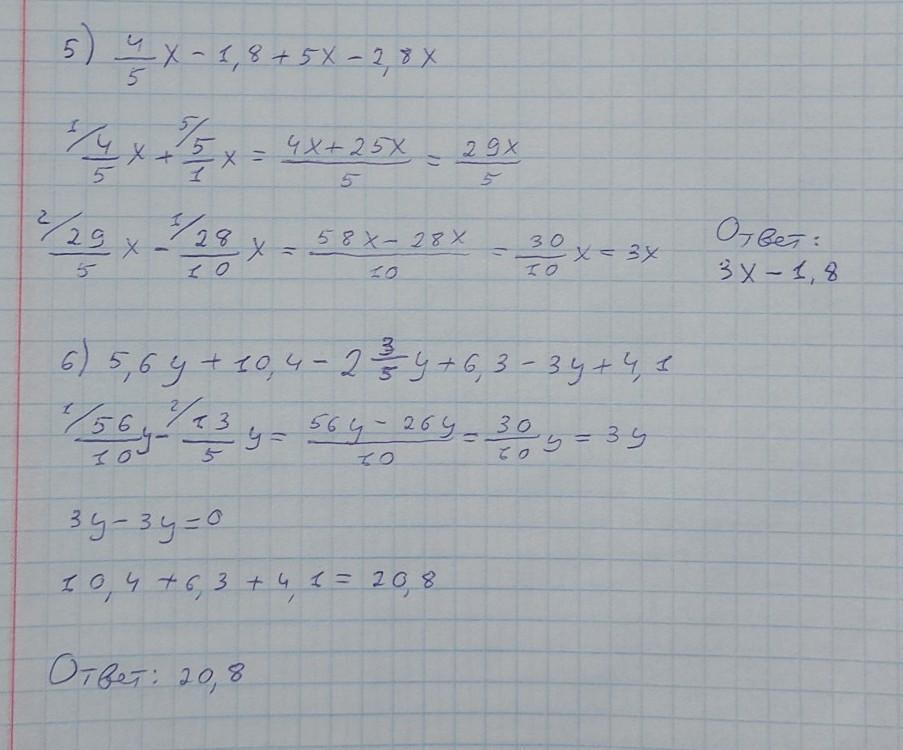 5) 4/5 x - 1,8 + 5x - 2,8x
1/ 4/5 x + 5/ 5/1 x = (4x + 25x)/5 = 29x/5
2/ 29/5 x - 1/ 28/10 x = (58x - 28x)/10 = 30/10 x = 3x
Ответ:
3x - 1,8
6) 5,6y + 10,4 - 2 3/5 y + 6,3 - 3y + 4,1
1/ 56/10 y - 2/ 13/5 y = (56y - 26y)/10 = 30/10 y = 3y
3y - 3y = 0
10,4 + 6,3 + 4,1 = 20,8
Ответ: 20,8